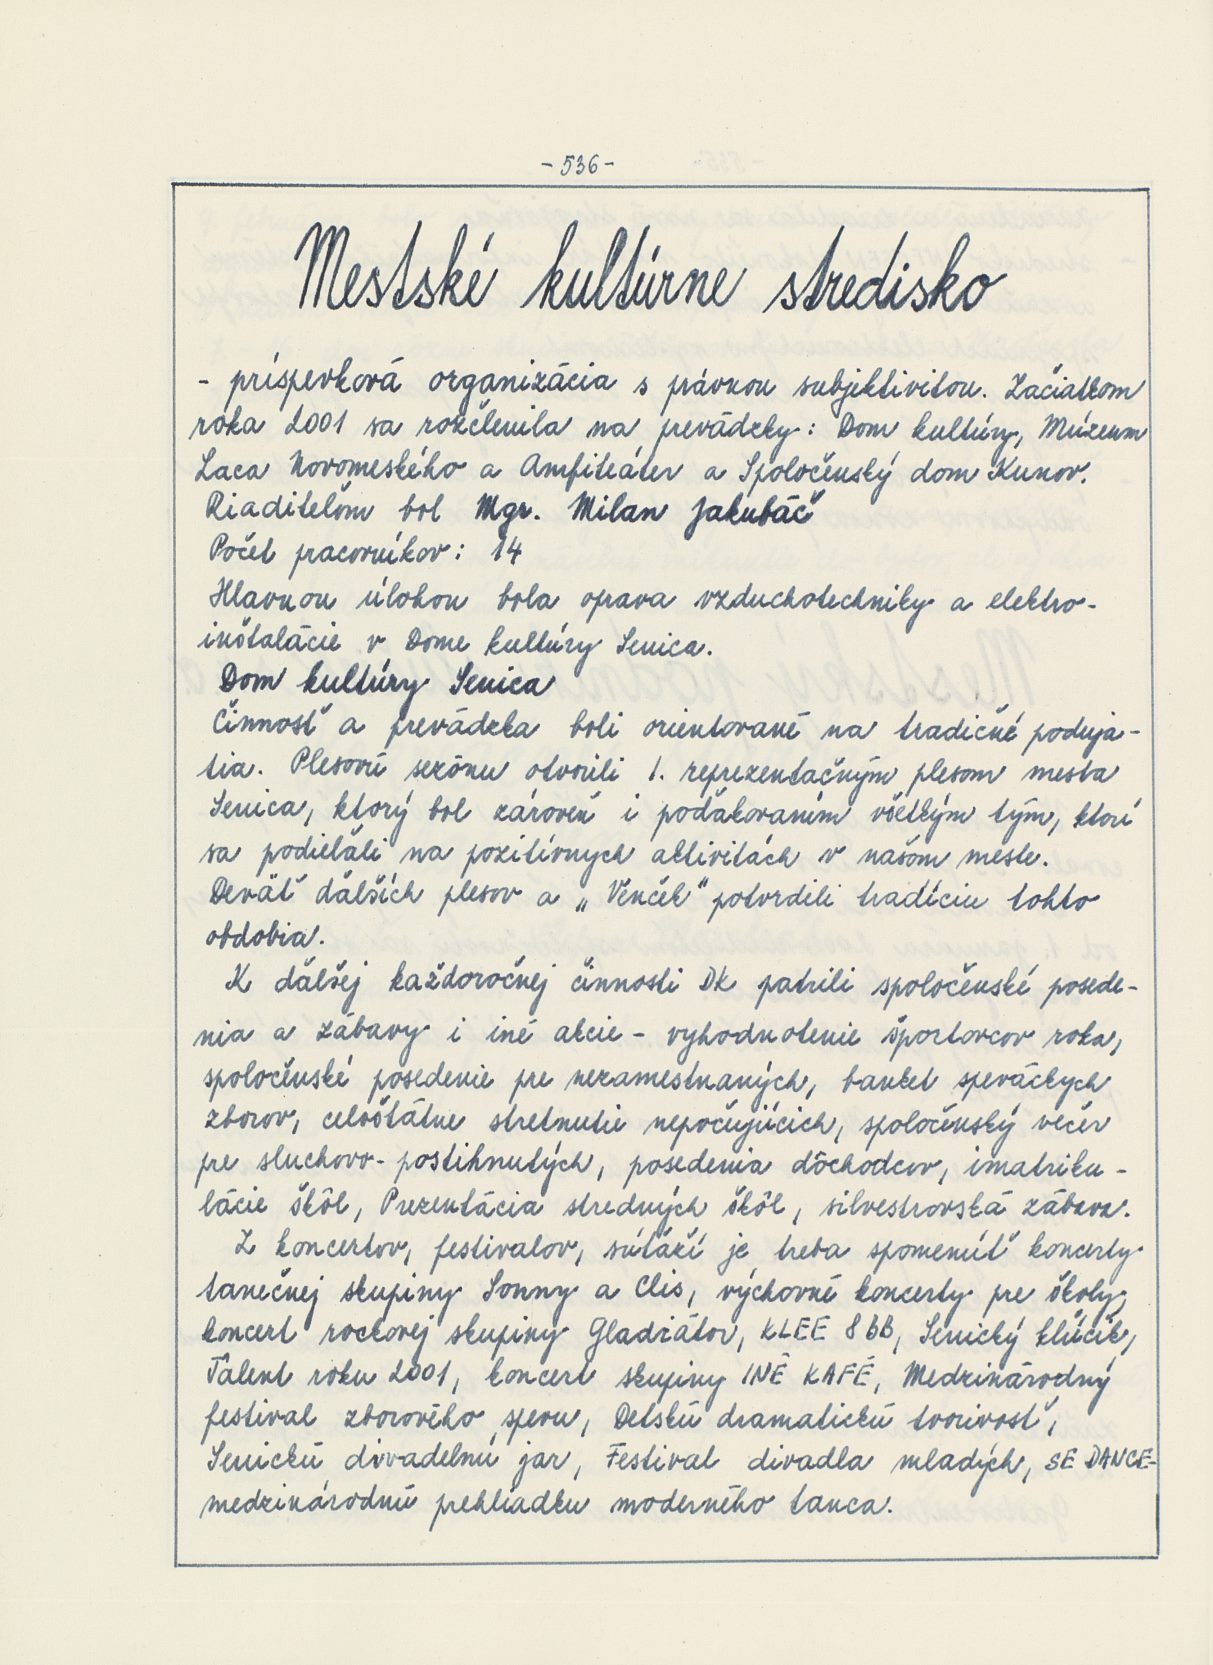 - 536 -
Mestské kultúrne stredisko
- príspevková organizácia s právnou subjektivitou. Začiatkom
roka 2001 sa rozčlenila na prevádzky: Dom kultúry, Múzeum
Laca Novomeského a Amfiteáter a Spoločenský dom Kunov.
Riaditeľom bol Mgr. Milan Jakubáč
Počet pracovníkov: 14
Hlavnou úlohou bola oprava vzduchotechniky a elektro-
inštalácie v Dome kultúry Senica.
Dom kultúry Senica
Činnosť a prevádzka boli orientované na tradičné poduja-
tia. Plesovú sezónu otvorili 1. reprezentačným plesom mesta
Senica, ktorý bol zároveň i poďakovaním všetkým tým, ktorí
sa podieľali na pozitívnych aktivitách v našom meste.
Deväť ďalších plesov a „Venček" potvrdili tradíciu tohto
obdobia.
K ďalšej každoročnej činnosti DK patrili spoločenské posede-
nia a zábavy i iné akcie - vyhodnotenie športovcov roka,
spoločenské posedenie pre nezamestnaných, banket speváckych
zborov, celoštátne stretnutie nepočujúcich, spoločenský večer
pre sluchovo-postihnutých, posedenia dôchodcov, imatriku-
lácie škôl, Prezentácia stredných škôl, silvestrovská zábava.
Z koncertov, festivalov, súťaží je treba spomenúť koncerty
tanečnej skupiny Sonny a Clis, výchovné koncerty pre školy,
koncert rockovej skupiny Gladiátor, KLEE 8 bB, Senický kľúčik,
Talent roku 2001, koncert skupiny INÉ KAFÉ, Medzinárodný
festival zborového spevu, Detskú dramatickú tvorivosť,
Senickú divadelnú jar, Festival divadla mladých, SE DANCE-
medzinárodnú prehliadku moderného tanca.